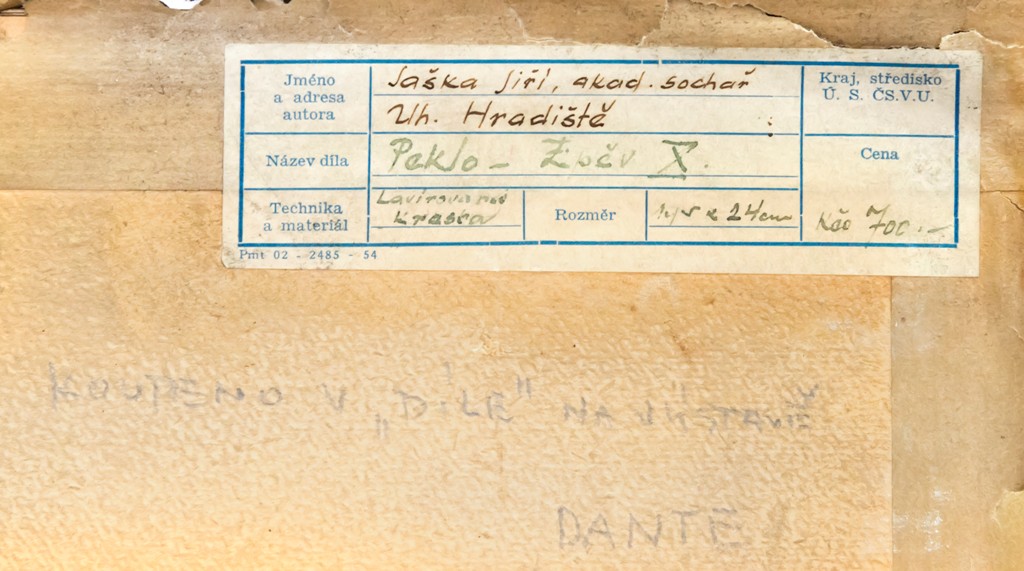 Jméno
a adresa
autora
Jaška Jiří, akad. sochař
Uh. Hradiště
Kraj, středisko
Ú. S. ČS.V.U.
Název díla
Peklo - Zpěv X.
Cena
Kčs 700.-
Technika
a materiál
Lavírovaná
kresba
Rozměr
x 24 cm
Pmt 02 - 2485 - 54
KOUPENO V „DÍLE" NA VÝSTAVĚ
DANTE